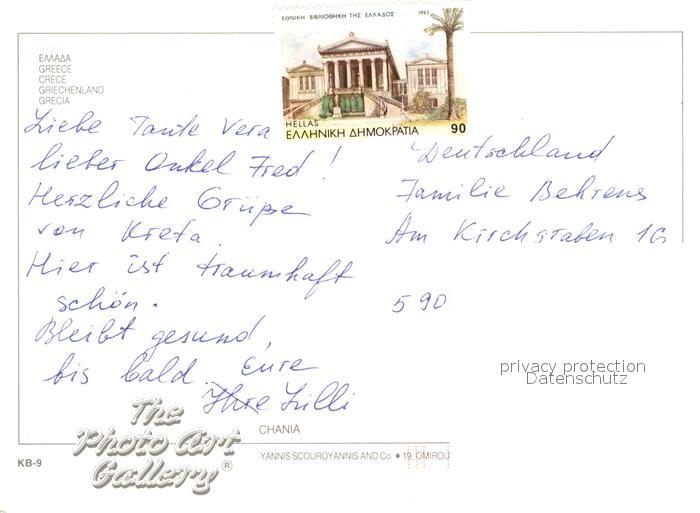 ΕΘΝΙΚΗ ΒΙΒΛΙΟΘΗΚΗ ΤΗΣ ΕΛΛΑΔΟΣ 1993
HELLAS
ΕΛΛΗΝΙΚΗ ΔΗΜΟΚΡΑΤΙΑ 90
ΕΛΛΑΔΑ
GREECE
CRÈCE
GRIECHENLAND
GRECIA
Liebe Tante Vera
lieber Onkel Fred!
Herzliche Grüße
von Kreta.
Hier ist traumhaft
schön.
Bleibt gesund,
bis bald. Eure
Ihre Lilli
Deutschland
Familie Behrens
Am Kirchgraben 16
590
privacy protection
Datenschutz
The
Photo Art
Gallery®
CHANIA
KB-9
YANNIS SCOUROYANNIS AND Co. • 19, OMIROU